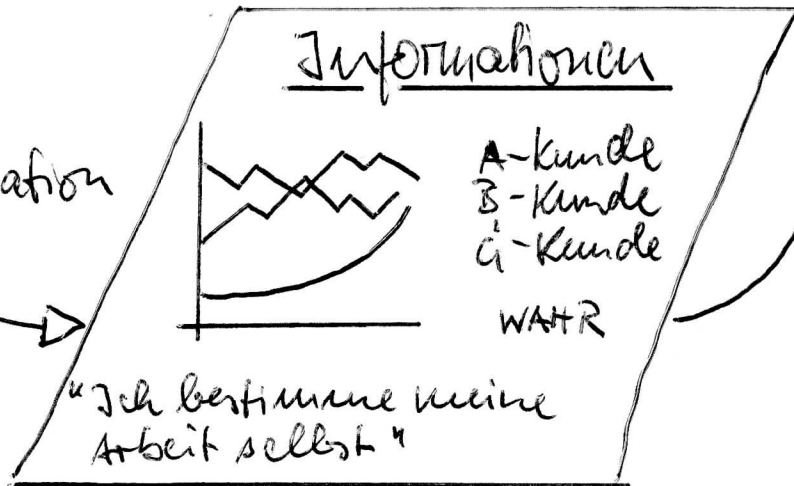 Informationen
ation
A-Kunde
B-Kunde
C-Kunde
WAHR
"Ich bestimme meine
Arbeit selbst"